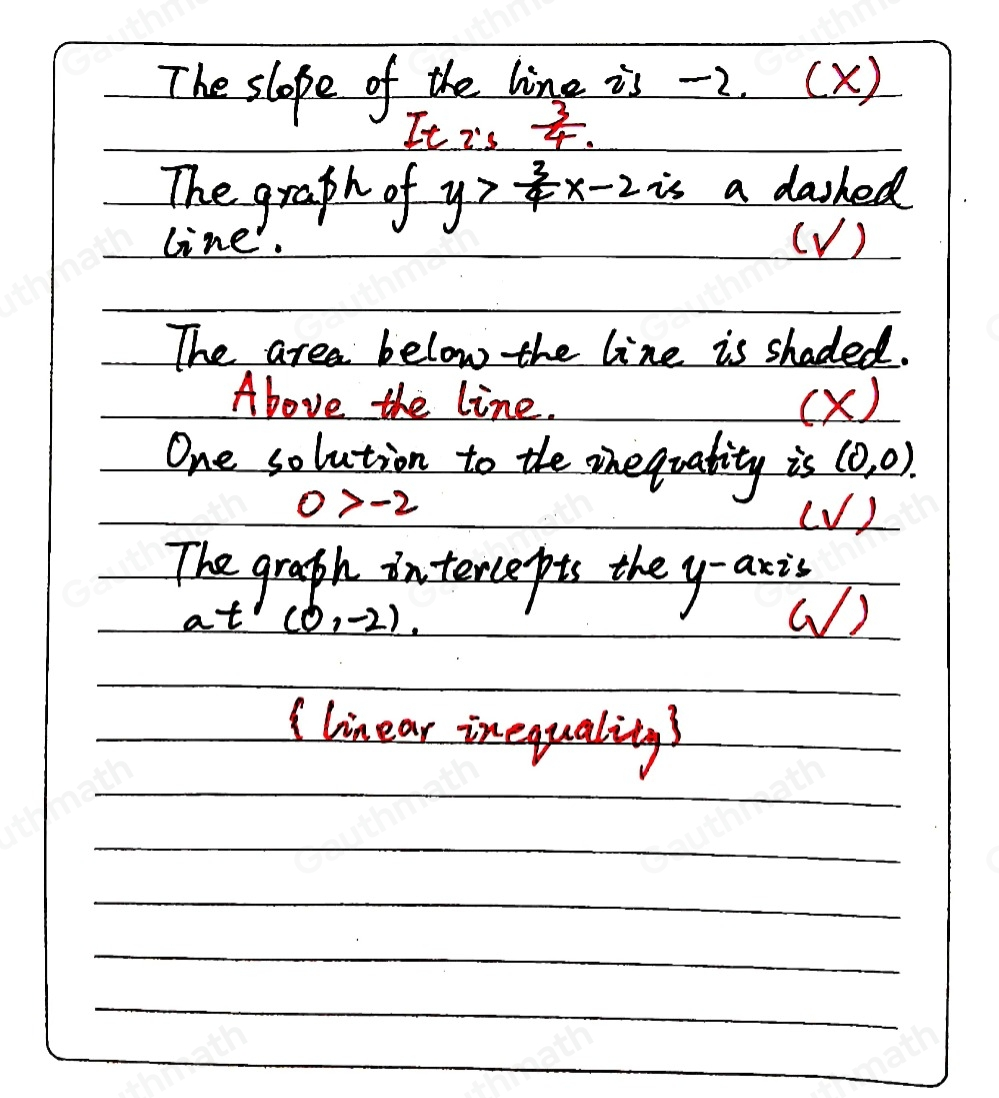 The slope of the line is -2. (X)
It is 3/4.
The graph of y > 3/4 x - 2 is a dashed
line. (✓)
The area below the line is shaded.
Above the line. (X)
One solution to the inequality is (0,0).
0 > -2 (✓)
The graph intercepts the y-axis
at (0,-2). (✓)
{linear inequality}
Gauthmath